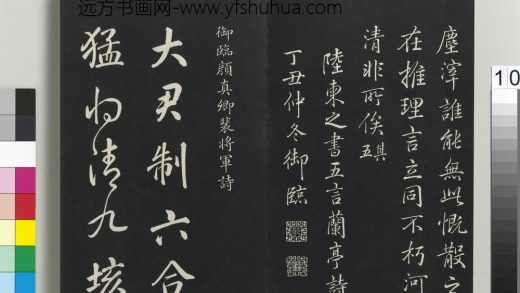 远方书画网-www.yfshuhua.com
塵滓誰能無此慨散之
在推理言立同不朽河
清非所俟其五
陸柬之書五言蘭亭詩
丁丑仲冬御臨
御臨顏真卿裴將軍詩
大君制六合
猛將清九垓
10